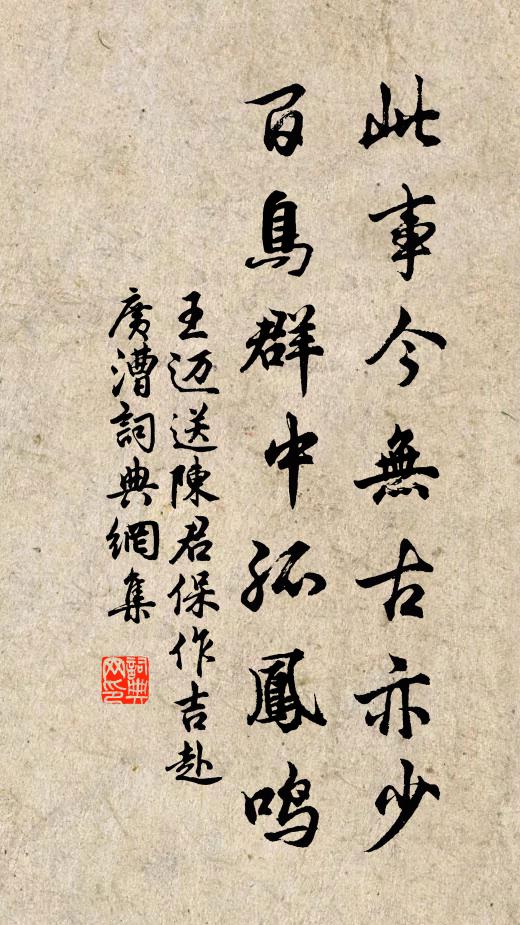 此事今無古亦少
百鳥群中孤鳳鳴
王迈送陳君保作吉赴
广漕詞典網集
詞典
网印